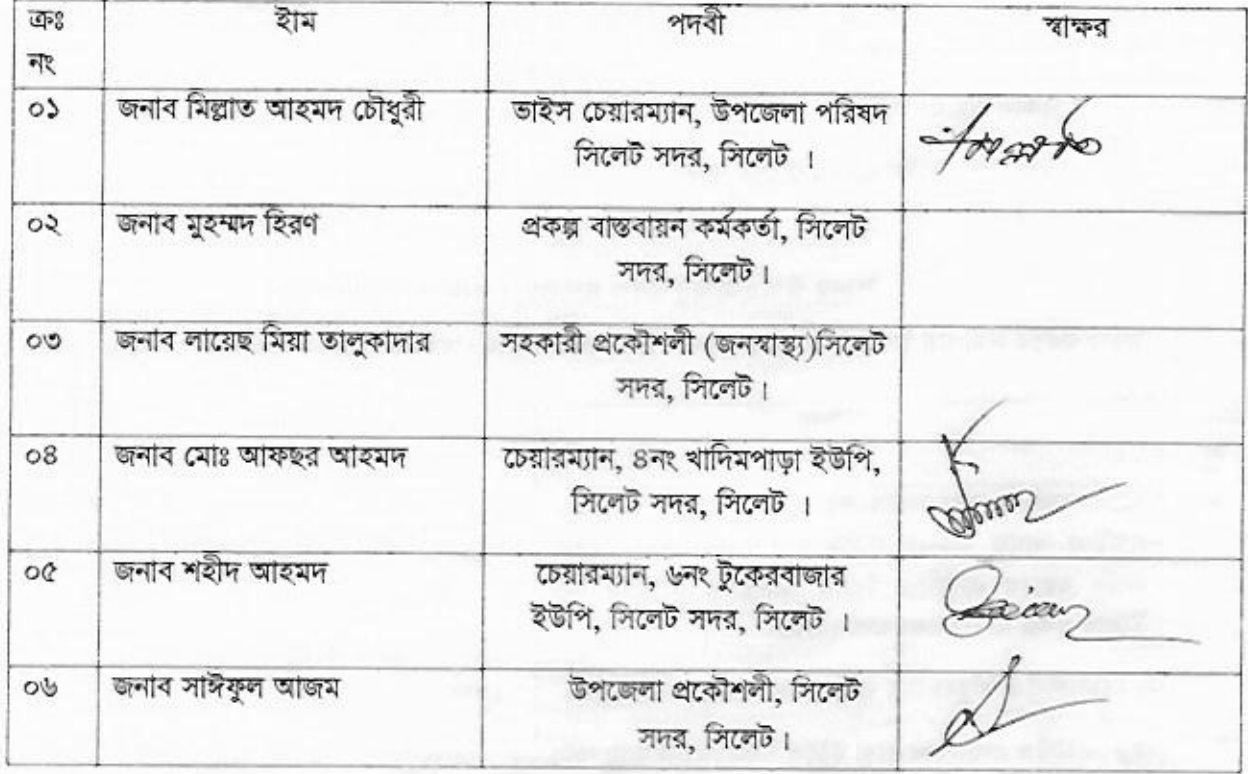 ক্রঃ নং ইাম পদবী স্বাক্ষর
০১ জনাব মিল্লাত আহমদ চৌধুরী ভাইস চেয়ারম্যান, উপজেলা পরিষদ
সিলেট সদর, সিলেট ।
০২ জনাব মুহম্মদ হিরণ প্রকল্প বাস্তবায়ন কর্মকর্তা, সিলেট
সদর, সিলেট।
০৩ জনাব লায়েছ মিয়া তালুকাদার সহকারী প্রকৌশলী (জনস্বাস্থ্য)সিলেট
সদর, সিলেট।
০৪ জনাব মোঃ আফছর আহমদ চেয়ারম্যান, ৪নং খাদিমপাড়া ইউপি,
সিলেট সদর, সিলেট ।
০৫ জনাব শহীদ আহমদ চেয়ারম্যান, ৬নং টুকেরবাজার
ইউপি, সিলেট সদর, সিলেট ।
০৬ জনাব সাঈফুল আজম উপজেলা প্রকৌশলী, সিলেট
সদর, সিলেট।